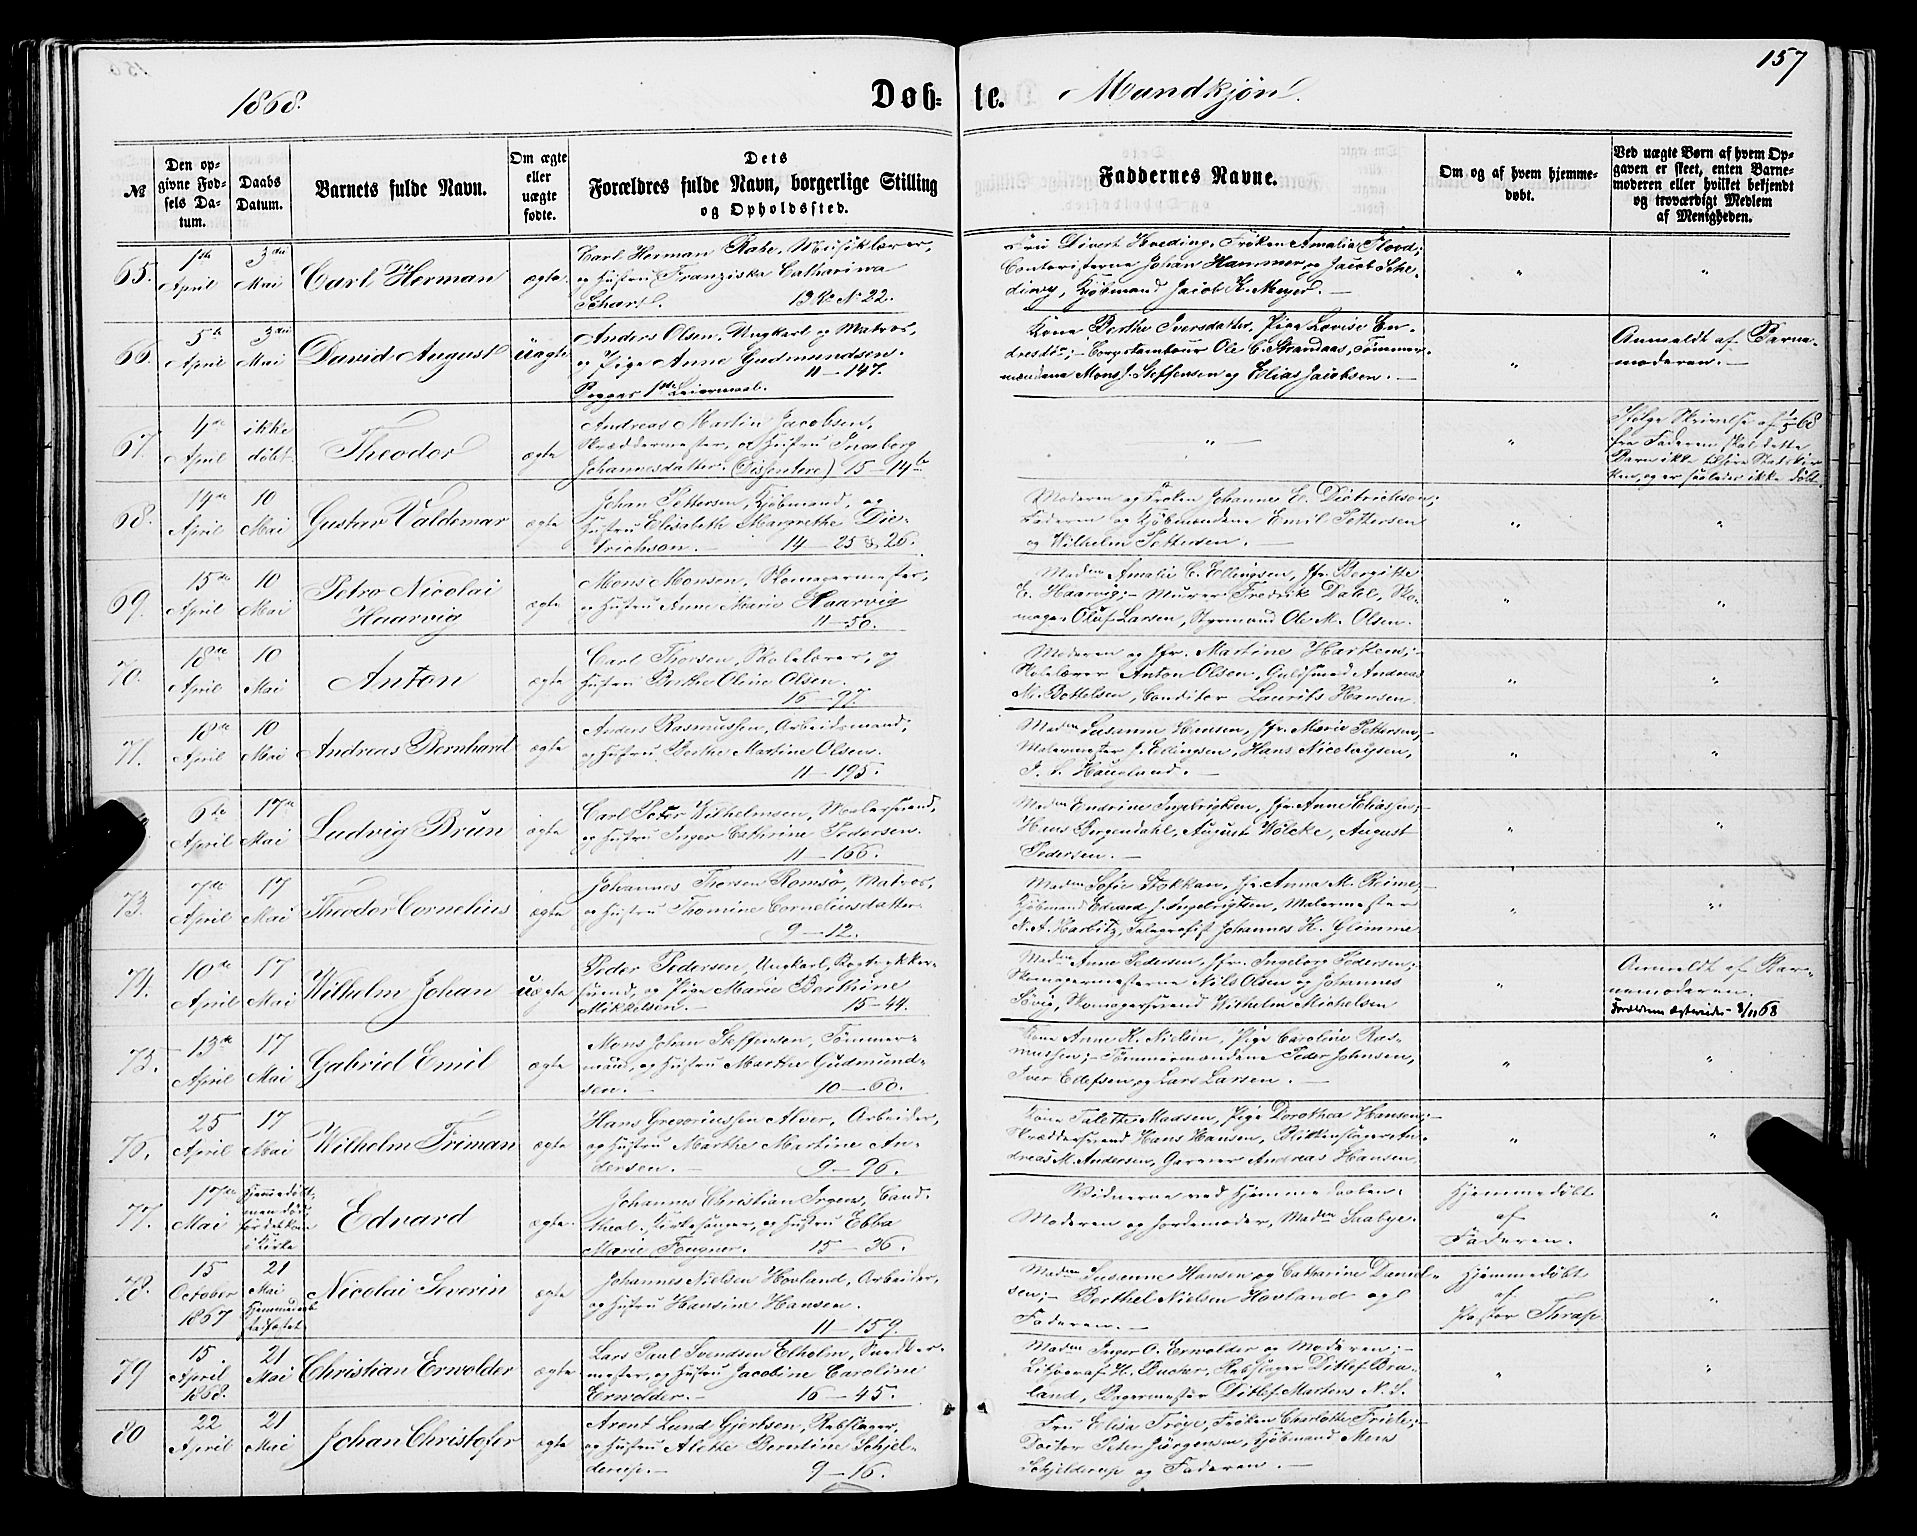 157
1868. Døb- te. Mandkjøn.
№
Den op-
givne Fød-
sels Da-
tum.
Daabs
Datum.
Barnets fulde Navn.
Om ægte
eller
uægte
fødte.
Dets
Forældres fulde Navn, borgerlige Stilling
og Opholdssted.
Faddernes Navne.
Om og af hvem hjemme-
døbt.
Ved uægte Børn af hvem Op-
gaven er skeet, enten Barne-
moderen eller hvilket bekjendt
og troværdigt Medlem
af Menigheden.
65. 1ste April 3die Mai Carl Herman ægte
Carl Herman Rabe, Musiklærer,
og Hustru Franziska Catharina
Scharf. 13 Rd. N. 22.
Fru Divert Hveding, Frøken Amalia Flood;
Contoristerne Johan Hammer og Jacob Sche-
ding, Kjøbmand Jacob K. Meyer. —
66. 5te April 3die Mai David August Uægte
Anders Olsen, Ungkarl og Matros,
og Pige Anne Gudmundsen.
11 — 147.
Begges 1ste Leiermaal.
Kone Berthe Iversdatter, Pige Lovise En-
dresen; — Corpstambour Ole C. Strandaas, Tømmer-
mændene Mons J. Steffensen og Elias Jacobsen. —
Anmeldt af Barne-
moderen. —
67. 4de April ikke døbt Theodor ægte
Andreas Martin Jacobsen,
Skræddermester, og Hustru Ingeborg
Johannesdatter. (Disentere) 15 — 14b
Ifølge Skrivelse af 1/5 68
fra Faderen skal dette
Barn ikke tilhøre Statskir-
ken, og er saaledes ikke døbt.
68. 14de April 10 Mai Gustav Valdemar ægte
Johan Pettersen, Kjøbmand, og
Hustru Elisabeth Margrethe Die-
trichson. — 14 — 25 & 26.
Moderen og Frøken Johannes E. Dietrichson;
Faderen og Kjøbmændene Emil Pettersen
og Wilhelm Pettersen. —
69. 15de April 10 Mai Petro Nicolai Haarvig ægte
Mons Monsen, Skomagermester,
og Hustru Anne Marie Haarvig
11 — 50.
Madm Amalie C. Ellingsen, Jfr. Bergitte
E. Haarvig; — Murer Fredrik Dahl, Sko-
mager Oluf Larsen, Styrmand Ole M. Olsen.
70. 18de April 10 Mai Anton ægte
Carl Thorsen, Skolelærer, og
Hustru Berthe Oline Olsen.
16 — 97.
Moderen og Jfr. Martine Harkens; —
Skolelærer Anton Olsen, Guldsmed Andreas
M. Bottelsen, Conditor Laurits Hansen.
71. 18de April 10 Mai Andreas Bernhard ægte
Anders Rasmussen, Arbeidsmand,
og Hustru Berthe Martine Olsen.
11 — 195.
Madm Susanne Hansen, Jfr. Marie Pettersen;
Malermester J. Ellingsen, Hans Nicolaysen,
J. C. Haueland. —
6te April 17de Mai Ludvig Brun ægte
Carl Peter Wilhelmsen, Malersvend,
og Hustru Inger Cathrine Pedersen.
11 — 166.
Madm Endrine Ingebrigtsen, Jfr. Anne Eliassen; —
Hans Birgendahl, August Wölcke, August
Pedersen. —
73. 7de April 17 Mai Theodor Cornelius ægte
Johannes Thorsen Romsø, Matros,
og Hustru Thomine Corneliusdatter
9 — 12.
Madm Sofie Stokkan, Jfr. Anna M. Reime; —
Kjøbmand Edvard J. Ingebrigtsen, Malermester
N. A. Harbitz, Telegrafist Johannes K. Glimme
74. 10de April 17 Mai Wilhelm Johan uægte
Peder Pedersen, Ungkarl, Bogtrykker-
svend, og Pige Marie Berthine
Mikkelsen. 15 — 44.
Madm Anne Pedersen, Jfr. Ingeborg Pedersen; —
Skomagermesterne Nils Olsen og Johannes
Søvig, Skomagersvend Wilhelm Michelsen
Anmeldt af Bar-
nemoderen.
Forældrene ægteviede 8/11 68
75. 13de April 17 Mai Gabriel Emil ægte
Mons Johan Steffensen, Tømmer-
mand, og Hustru Marthe Gudmund-
sen. — 10 — 60.
Kone Anne K. Nielsen, Pige Caroline Ras-
mussen; — Tømmermændene Peder Johnsen,
Iver Edefsen og Lars Larsen. —
76. 25 April 17 Mai Wilhelm Friman ægte
Hans Gregoriussen Alver, Arbeider,
og Hustru Marthe Martine An-
dersen. — 9 — 96.
Kone Talette Madsen, Pige Dorothea Hansen; —
Skræddersvend Hans Hansen, Blikkenslager An-
dreas M. Andersen, Garver Andreas Hansen
77. 17de Mai Hjemmedøbt men død før det kom i Kirke Edvard ægte
Johannes Christian Irgens, Cand.
theol., Kirkesanger, og Hustru Ebba
Marie Fougner. 15 — 36.
Vidnerne ved Hjemmedaaben:
Moderen og Jordemoder, Madm Saabye.
Hjemmedøbt
af
Faderen.
78. 15 October 1867 21 Mai Hjemmedaab stadfæstet Nicolai Severin ægte
Johannes Nielsen Hovland, Arbeider,
og Hustru Hansine Hansen.
11 — 159.
Madm Susanne Hansen og Catharine Daniel-
sen; — Berthel Nielsen Hovland og
Faderen. —
Hjemmedøbt
af
Pastor Thrap.
79 15 April 1868. 21 Mai Christian Erwolder ægte
Lars Paul Svendsen Elholm, Snedker-
mester, og Hustru Jacobine Caroline
Erwolder. — 16 — 45.
Madm Inger O. Erwolder og Moderen; —
Lithograf H. Bucher, Rebslager Ditlef Bru-
land, Bøgermester Ditlef Martens N. S.
80 22 April 21 Mai Johan Christofer ægte
Arent Lund Gjertsen, Rebslager,
og Hustru Alette Berntine Schjel-
derup. — 9 — 16.
Fru Elisa Trøye, Frøken Charlotte Friele; —
Doctor Peter Jürgensen, Kjøbmand Mens
Schjelderup og Faderen. —